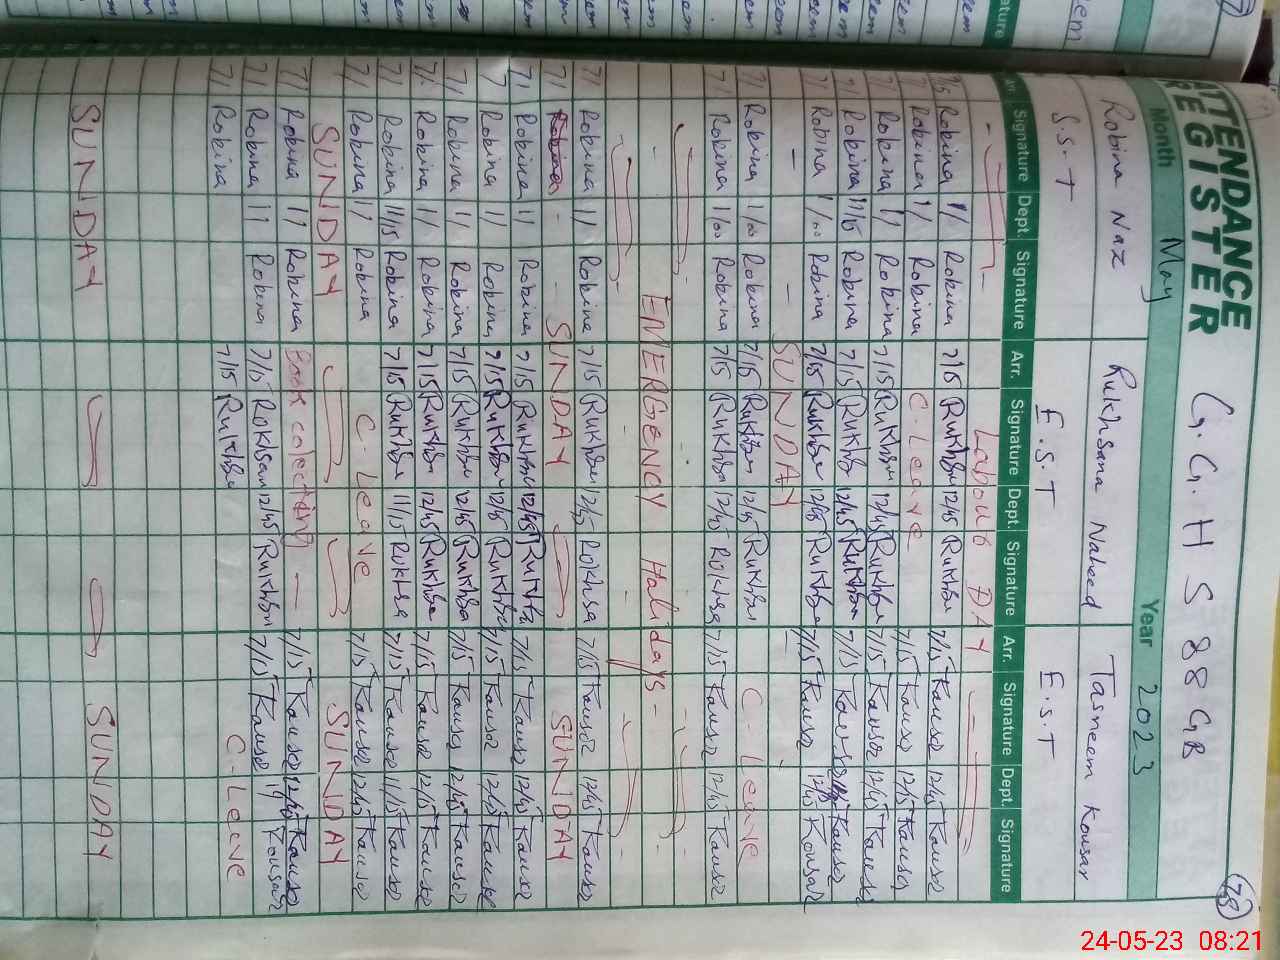 ATTENDANCE
REGISTER
G.G.H S 88 GB
78
Month May Year 2023
Robina Naz Rukhsana Naheed Tasneem Kousar
S.S.T E.S.T E.S.T
Signature Dept. Signature Arr. Signature Dept. Signature Arr. Signature Dept. Signature
Labour DAY
Robina 11 Robina 7/15 Rukhsa 12/45 Rukhsa 7/15 Kausar 12/45 Kausar
Robina 11 Robina C-Leave 7/15 Kausar 12/45 Kausar
Robina 11 Robina 7/15 Rukhsa 12/45 Rukhsa 7/15 Kausar 12/45 Kausar
Robina 11/15 Robina 7/15 Rukhsa 12/45 Rukhsa 7/15 Kausar Kausar
Robina 1/00 Robina 7/15 Rukhsa 12/45 Rukhsa 7/15 Kausar 12/45 Kousar
SUNDAY
Robina 1/00 Robina 7/15 Rukhsa 12/45 Rukhsa C-Leave
Robina 1/00 Robina 7/15 Rukhsa 12/45 Rukhsa 7/15 Kausar 12/45 Kausar
EMERGENCY Halidays -
Robina 11 Robina 7/15 Rukhsa 12/45 Rokhsa 7/15 Kausar 12/45 Kausar
SUNDAY SUNDAY
Robina 11 Robina 7/15 Rukhsa 12/45 Rukhsa 7/15 Kausar 12/45 Kausar
Robina 11 Robina 7/15 Rukhsa 12/45 Rukhsa 7/15 Kausar 12/45 Kausar
Robina 11 Robina 7/15 Rukhsa 12/45 Rukhsa 7/15 Kausar 12/45 Kausar
Robina 11 Robina 7/15 Rukhsa 12/45 Rukhsa 7/15 Kausar 12/45 Kausar
Robina 11/15 Robina 7/15 Rukhsa 11/15 Rukhsa 7/15 Kausar 11/15 Kausar
Robina 11 Robina C-Leave 7/15 Kausar 12/45 Kausar
SUNDAY SUNDAY
Robina 11 Robina Book colecting 7/15 Kausar 12/45 Kausar
Robina 11 Robina 7/15 Rokhsana 12/45 Rukhsa 7/15 Kausar 11 Kousar
Robina 7/15 Rukhsa C-Leave
SUNDAY SUNDAY
24-05-23 08:21